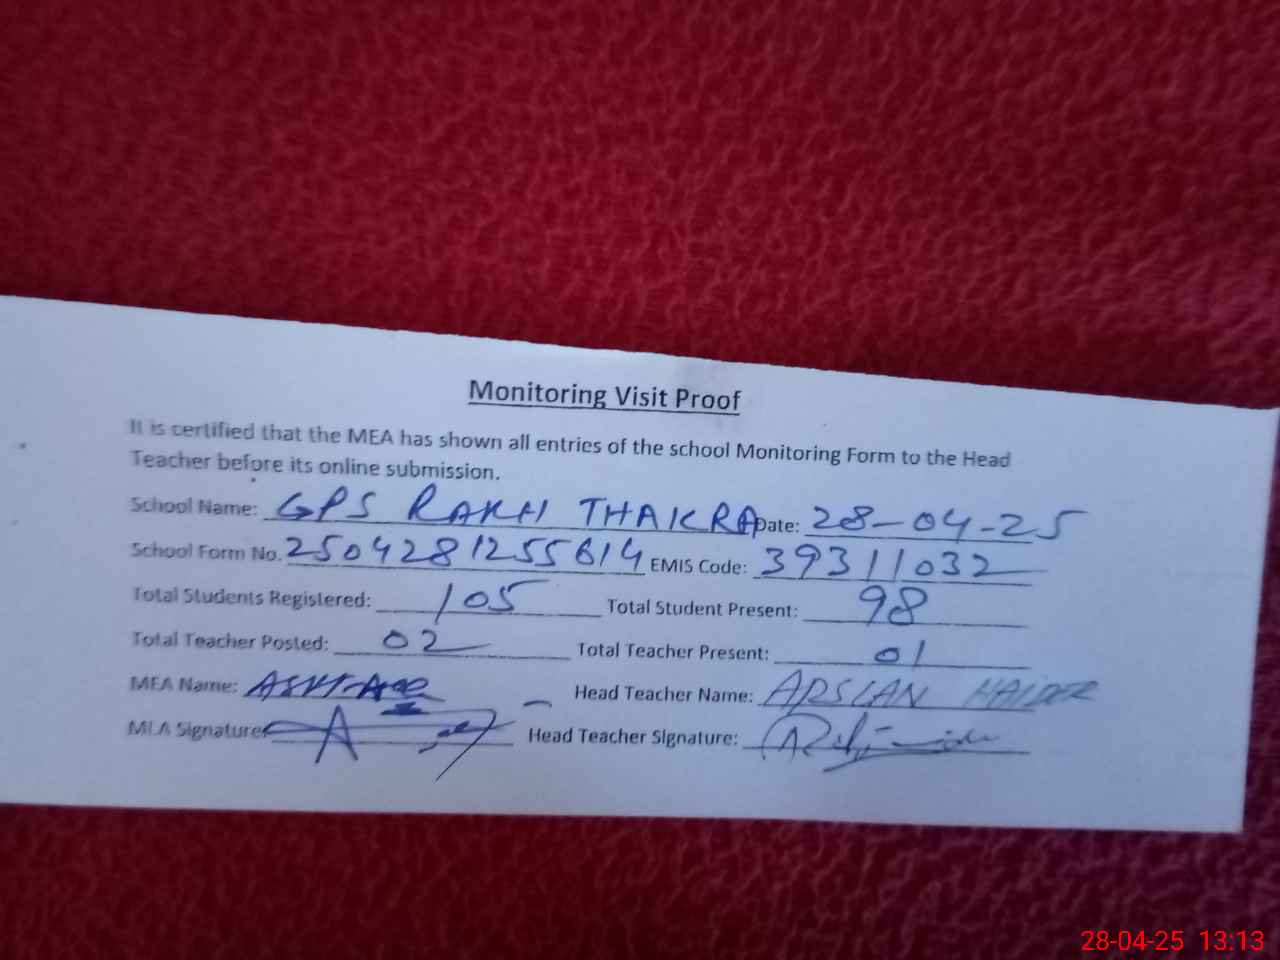 Monitoring Visit Proof
It is certified that the MEA has shown all entries of the school Monitoring Form to the Head
Teacher before its online submission.
School Name: GPS RAKH THAKRA Date: 28-04-25
School Form No. 2504281255614 EMIS Code: 39311032
Total Students Registered: 105 Total Student Present: 98
Total Teacher Posted: 02 Total Teacher Present: 01
MEA Name: Head Teacher Name: ARSLAN HAIDER
MEA Signature: Head Teacher Signature:
28-04-25 13:13